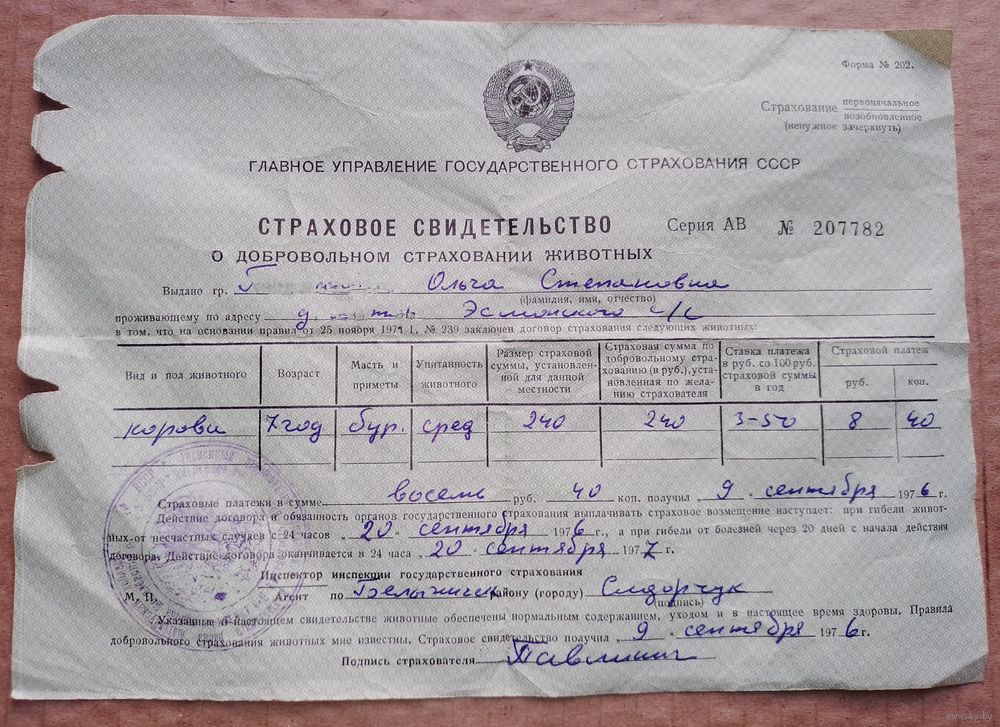 Форма № 202.
Страхование первоначальное
возобновленное
(ненужное зачеркнуть)
ГЛАВНОЕ УПРАВЛЕНИЕ ГОСУДАРСТВЕННОГО СТРАХОВАНИЯ СССР
СТРАХОВОЕ СВИДЕТЕЛЬСТВО Серия АВ № 207782
О ДОБРОВОЛЬНОМ СТРАХОВАНИИ ЖИВОТНЫХ
Выдано гр. Ольга Степановна
(фамилия, имя, отчество)
проживающему по адресу д. Эсмонского с/с
в том, что на основании правил от 25 ноября 1971 г. № 239 заключен договор страхования следующих животных:
Вид и пол животного Возраст Масть и приметы Упитанность животного Размер страховой суммы, установленной для данной местности Страховая сумма по добровольному страхованию (в руб.), установленная по желанию страхователя Ставка платежа в руб. со 100 руб. страховой суммы в год Страховой платеж руб. коп.
корова 7 год бур. сред 240 240 3-50 8 40
Страховые платежи в сумме восемь руб. 40 коп. получил 9 сентября 1976 г.
Действие договора и обязанность органов государственного страхования выплачивать страховое возмещение наступает: при гибели живот-
ных от несчастных случаев с 24 часов 20 сентября 1976 г., а при гибели от болезней через 20 дней с начала действия
договора. Действие договора оканчивается в 24 часа 20 сентября 1977 г.
Инспектор инспекции государственного страхования
М. П. Агент по району (городу) Сидорчук
(подпись)
Указанные в настоящем свидетельстве животные обеспечены нормальным содержанием, уходом и в настоящее время здоровы. Правила
добровольного страхования животных мне известны. Страховое свидетельство получил 9 сентября 1976 г.
Подпись страхователя
www.ay.by